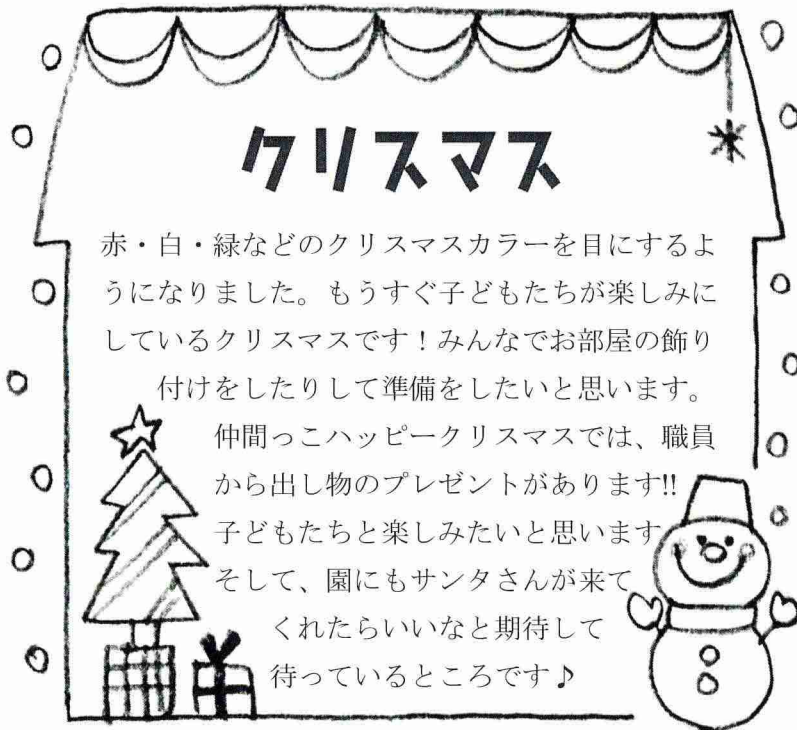 クリスマス
赤・白・緑などのクリスマスカラーを目にするよ
うになりました。もうすぐ子どもたちが楽しみに
しているクリスマスです！みんなでお部屋の飾り
付けをしたりして準備をしたいと思います。
仲間っこハッピークリスマスでは、職員
から出し物のプレゼントがあります!!
子どもたちと楽しみたいと思います
そして、園にもサンタさんが来て
くれたらいいなと期待して
待っているところです♪